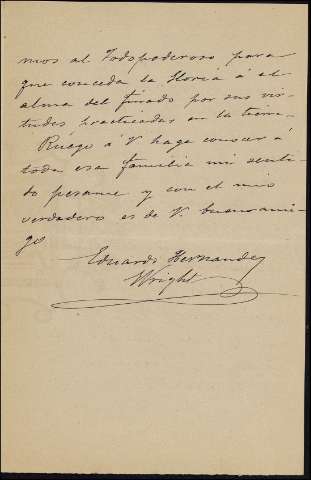 mos al Todopoderoso para
que conceda la Gloria á el
alma del finado por sus vir-
tudes practicadas en la tierra.
Ruego á V haga conocer á
toda esa familia mi senti
do pesame y con el mio
verdadero es de V. buen ami-
go
Eduardo Hernandez
Wright